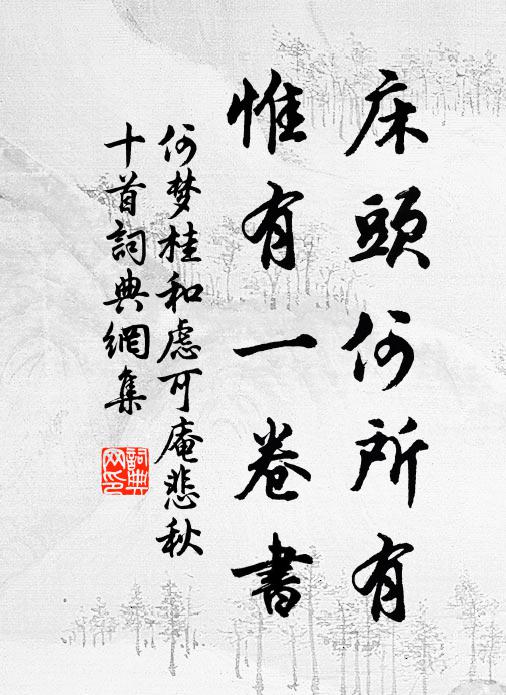 床頭何所有
惟有一卷書
何梦桂和慮可庵悲秋
十首詞典網集
詞典网印